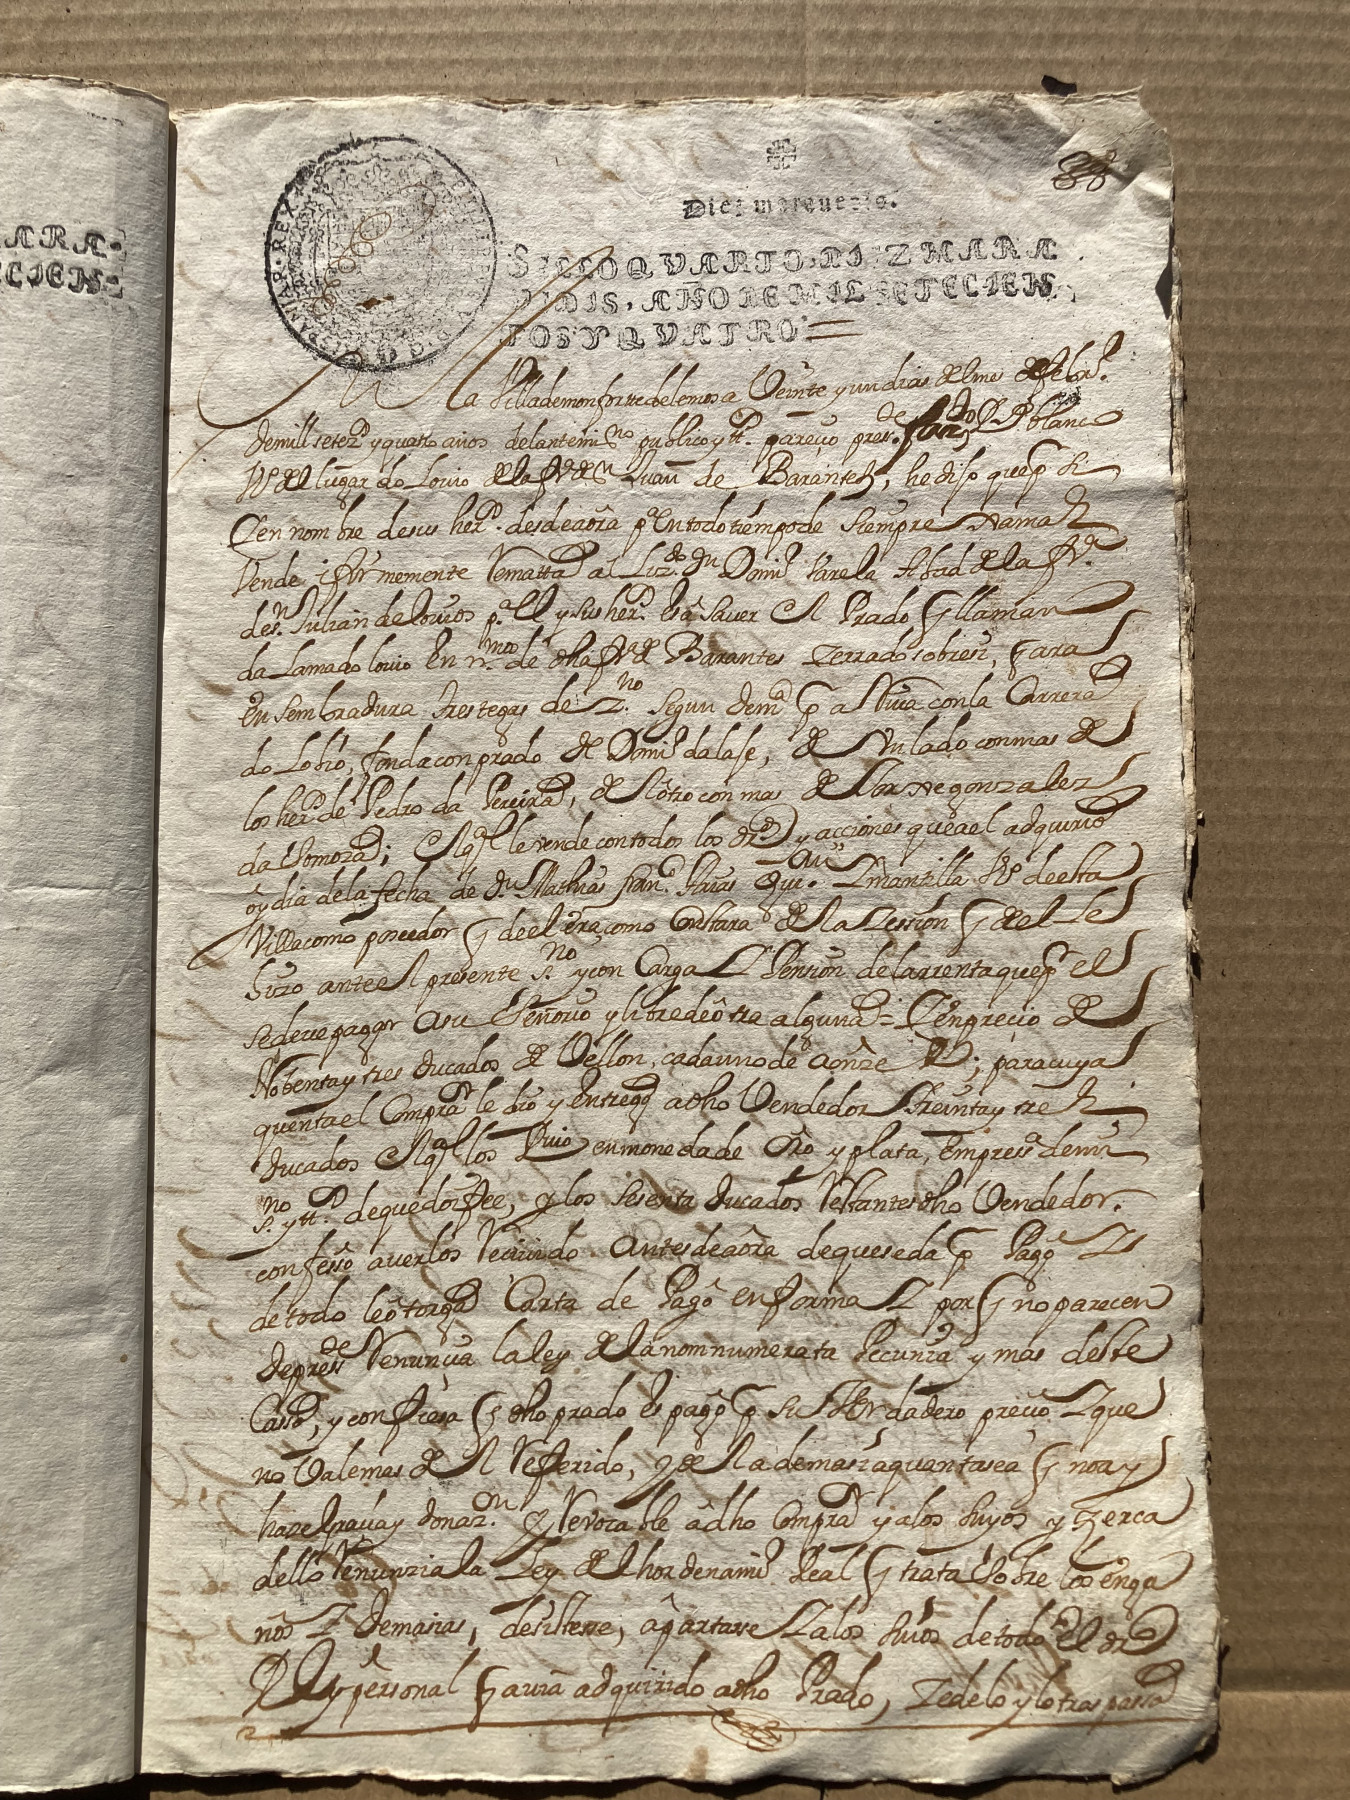 ARA-
ECIEN-
88
Diez maravedis.
SELLO QVARTO, DIEZ MARA
VEDIS, AÑO DE MIL SETECIEN
TOS Y QVATRO
HISPANIAR. REX
En la Villa de monforte de lemos a Veinte y un dias del mes de febr.º
de mill setez.s y quatro años delante mi s.no publico y tt.º pareçio pres.te Fran.co blanco
Vº del lugar do Lovio de la fr.a de S.n Juan de Barantes, he dijo que p.r si
Y en nombre de sus her.os desde aora p.a En todo tiempo de siempre xamas
Vende i firmemente Rematta al Liz.do Dn Domi.º Varela Abad de la fr.a
de S.n Julian de lovios p.a el y sus her.os es a saver El Prado q llaman
da Lama do lovio En tr.mos de dha fr.a de Barantes Zerrado sobre si, q ara
En sembradura tres tegas de Z.no segun dem.a p.r aRiva con la Carrera
do Lobio, fonda con prado de Domi.º da lage, de Un lado con mas de
los her.os de Pedro da Pereira, de el otro con mas de gonzalez
da Chomoza; El q.l le vende con todos los dr.os y acciones que a el adquirio
oy dia de la fecha de Dn Mathias fran.co Arias mantilla Vº de esta
Villa como poseedor q de el era como Constara de la Zession q de el le
hizo ante El presente s.no y con Carga Y Pension de la rrenta que p.r el
se deve pagar a su Señorio y libre de otra alguna = Y en precio de
Nobenta y tres ducados de Vellon, cada uno de a onze Rs; para cuya
quenta el Comprador le dio y entrego a dho Vendedor treinta y tres
ducados El q.l los Rvio en moneda de Oro y plata, En pres.a de mi
s.no y tt.os de que doy fee, y los sesenta ducados Restantes dho Vendedor
confesso averlos Recivido antes de aora de que se da p.r Pago Y
de todo le otorga Carta de Pago en forma Y por q no parecen
de press.te Renunçia la ley de la non numerata Pecunia y mas deste
Casso, y confiesa q dho prado es pago p.r su Verdadero preçio Y que
no Vale mas de el Referido, y de la demasia quanta sea q no ay
haze graçia y donaz.on YRevocable a dho Comprador y a los suyos y Zerca
dello Renunzia la Ley del hordenami.º Real q trata Sobre los enga
nos Y demasias, desisterse, apartarse Y a los suios de todo el dr.º
Rl y personal q avia adquirido a dho Prado, Zedelo y lo traspassa